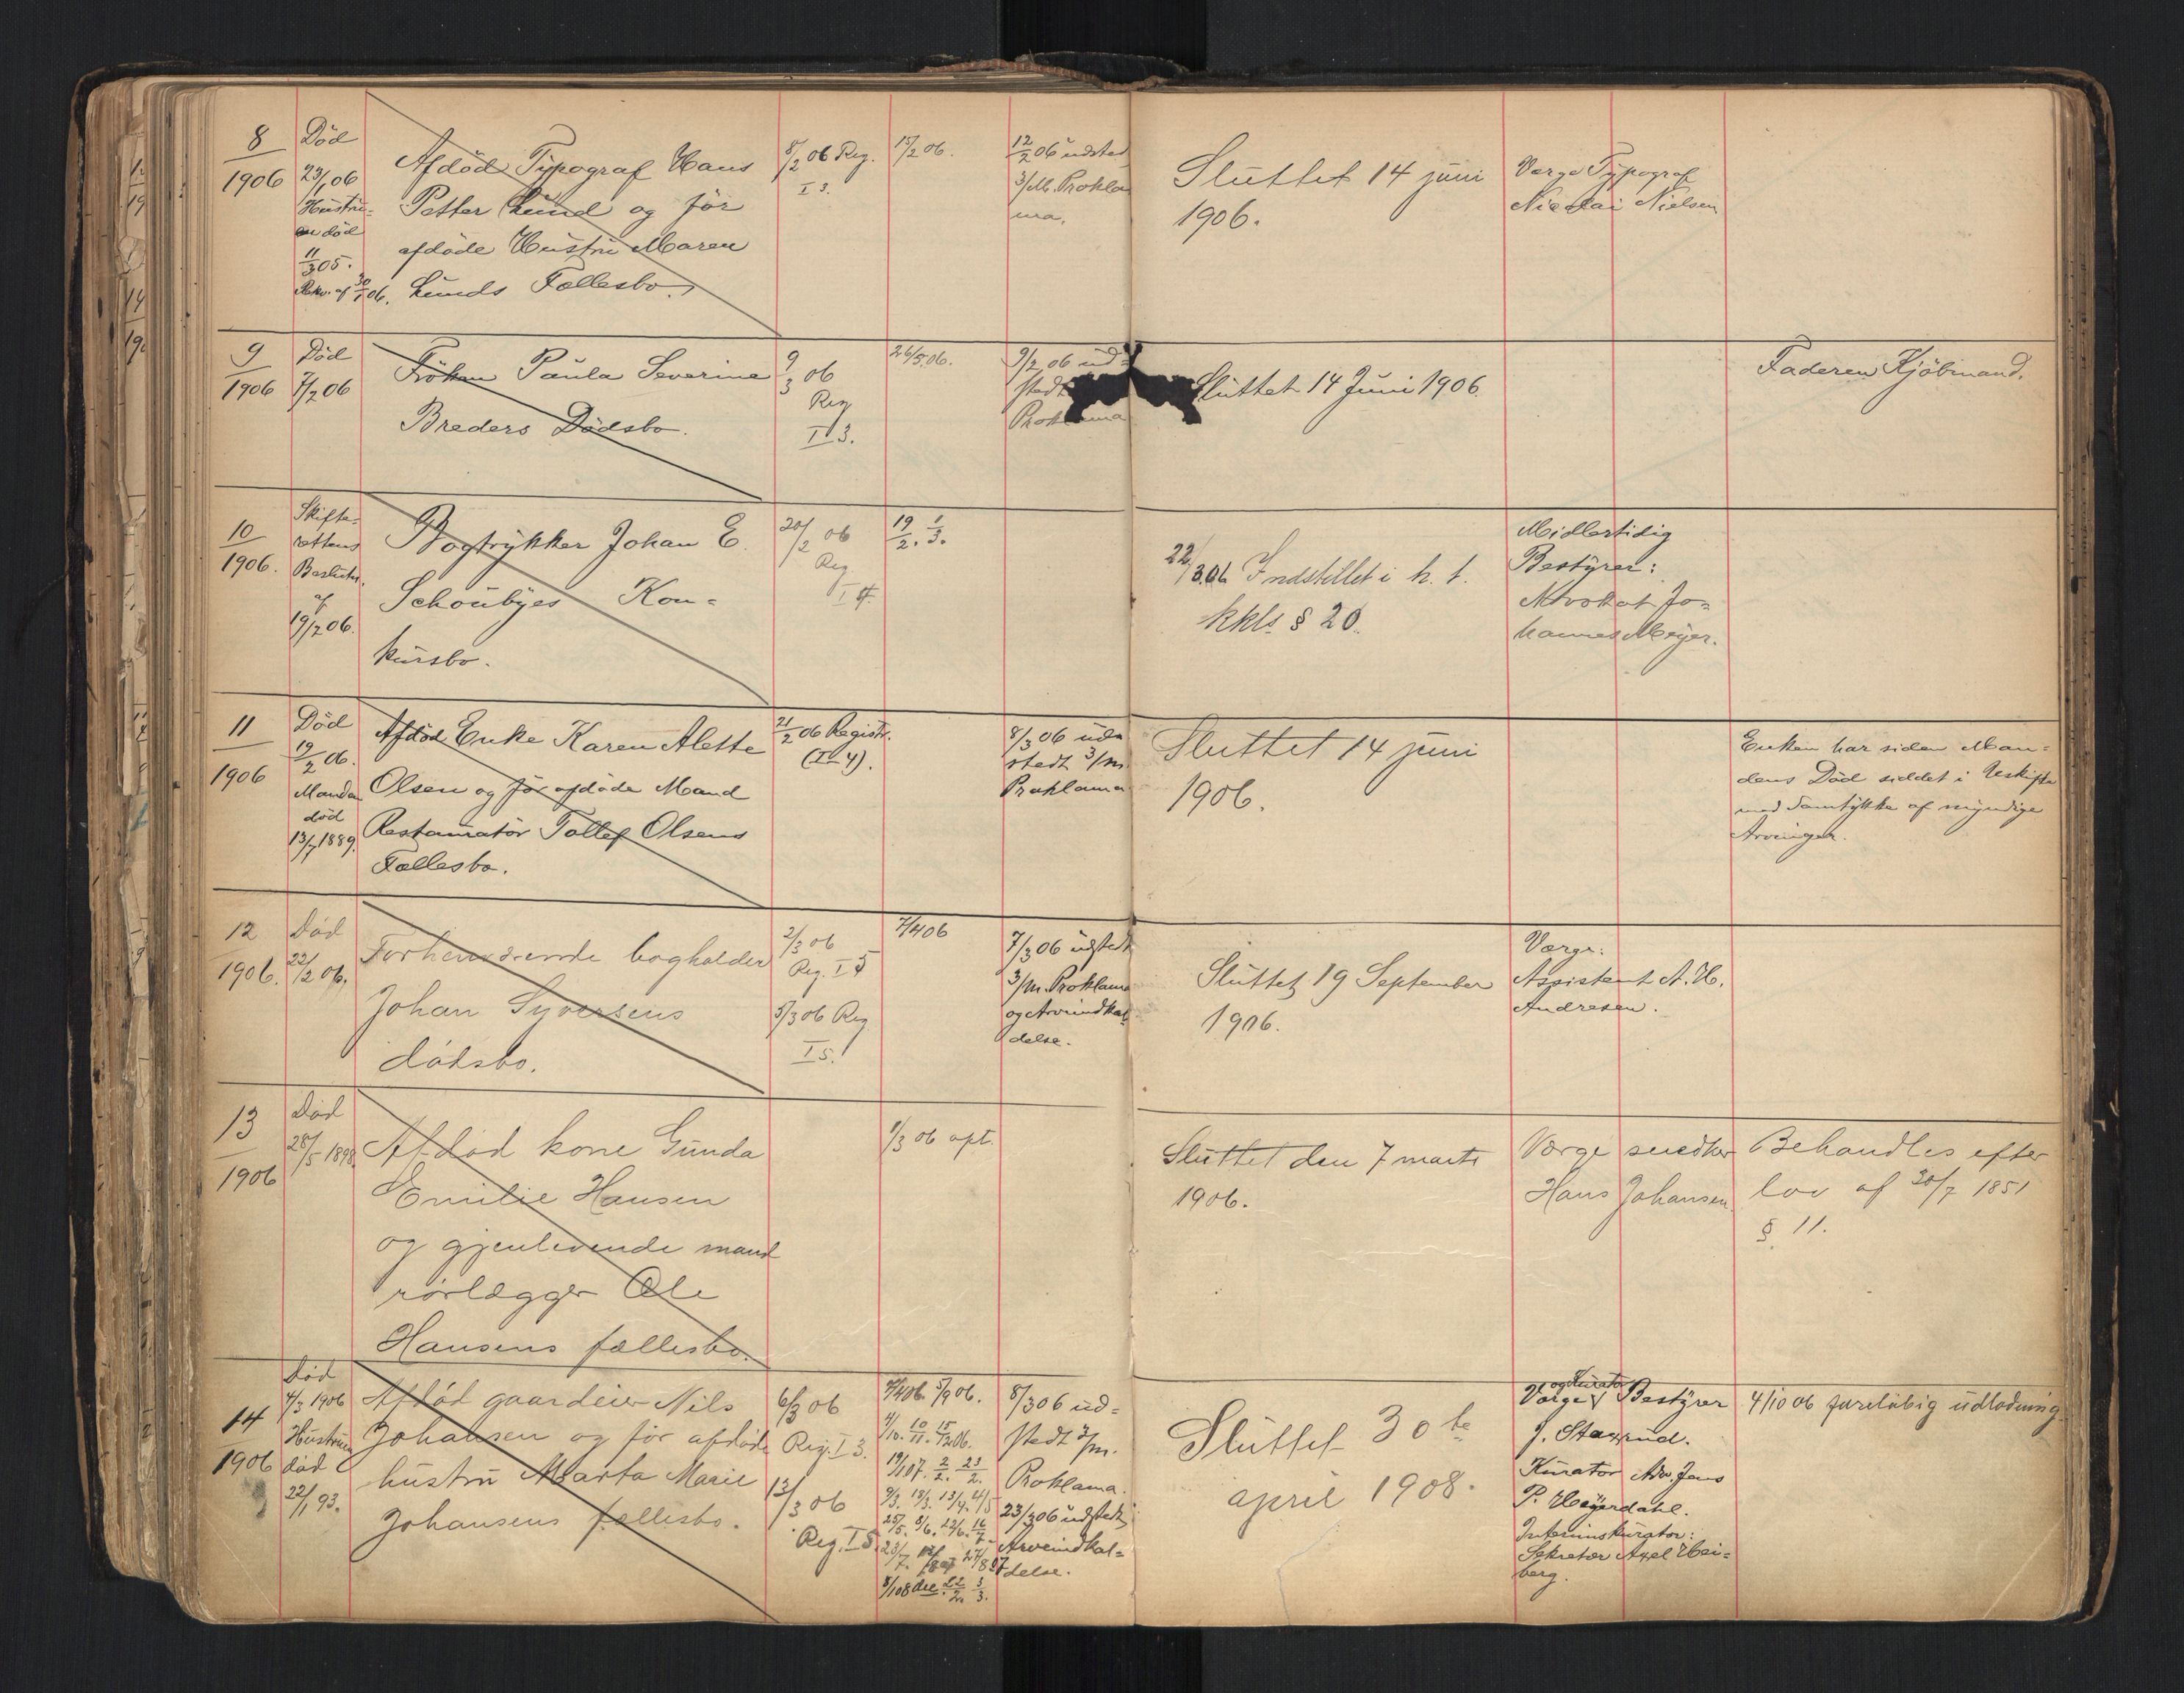 8
1906
Død
23/1 06
Hustru-
en død
11/3 05.
Rekv. af 30/1 06.
Afdød Typograf Hans
Petter Lund og før
afdøde Hustru Maren
Lunds Fællesbo.
8/2 06 Reg.
I 3.
15/2 06.
12/2 06 udsted
3/M. Prokla
ma.
Sluttet 14 juni
1906.
Værge Typograf
Nicolai Nielsen
9
1906
Død
7/2 06
Frøken Paula Severine
Breders Dødsbo.
9/3 06
Reg
I 3.
26/5 06.
9/2 06 ud-
stedt
Proklama
Sluttet 14 Juni 1906.
Faderen Kjøbmand.
10
1906.
Skifte-
rettens
Beslutn.
af
19/2 06.
Bogtrykker Johan E.
Schoubyes Kon-
kursbo.
20/2 06
Reg
I 4.
19/2. 1/3.
22/3 06 Indstillet i h. t.
kkls § 20.
Midlertidig
Bestyrer:
Advokat Jo-
hannes Meyer.
11
1906
Død
19/2 06.
Manden
død
13/7 1889.
Afdød Enke Karen Alette
Olsen og før afdøde Mand
Restauratør Tollef Olsens
Fællesbo.
21/2 06 Registr.
(I 4).
8/3 06 uds
stedt 3/m
Proklama
Sluttet 14 juni
1906.
Enken har siden Man-
dens Død siddet i Uskifte
med Samtykke af myndige
Arvinger.
12
1906.
Død
22/2 06.
Forhenværende bogholder
Johan Syversens
dødsbo.
2/3 06
Reg. I 5
5/3 06 Reg
I 5.
7/4 06
7/3 06 udstedt
3/m. Proklama
og Arveindkal
delse.
Sluttet 19 September
1906.
Værge:
Assistent A. H.
Andresen.
13
1906
Død
28/5 1898
Afdød kone Gunda
Emilie Hansen
og gjenlevende mand
rørlægger Ole
Hansens fællesbo.
1/3 06 opt.
Sluttet den 7 marts
1906.
Værge snedker
Hans Johansen
Behandles efter
lov af 30/7 1851
§ 11.
14
1906
Død
4/3 1906
Hustruen
død
22/1 93.
Afdød gaardeier Nils
Johansen og før afdøde
hustru Marta Marie
Johansens fællesbo.
6/3 06
Reg. I 3.
13/3 06
Reg. I 5.
7/4 06. 5/9 06.
4/10. 10/11. 15/12 06.
19/1 07. 2/2. 23/2.
9/3. 18/3. 13/4. 4/5
25/5. 8/6. 22/6. 16/7.
23/7. 27/8 07
8/1 08 22/2. 3/3.
8/3 06 ud-
stedt 3/m.
Proklama.
23/3 06 udstedt
Arveindkal-
delse.
Sluttet 30te
april 1908.
og Kurator
Værge Bestyrer
J. Staxrud.
Kurator Adv. Jens
P. Heyerdahl.
Interimskurator:
Sekretær Axel Hei-
berg.
4/10 06 foreløbig udlodning.